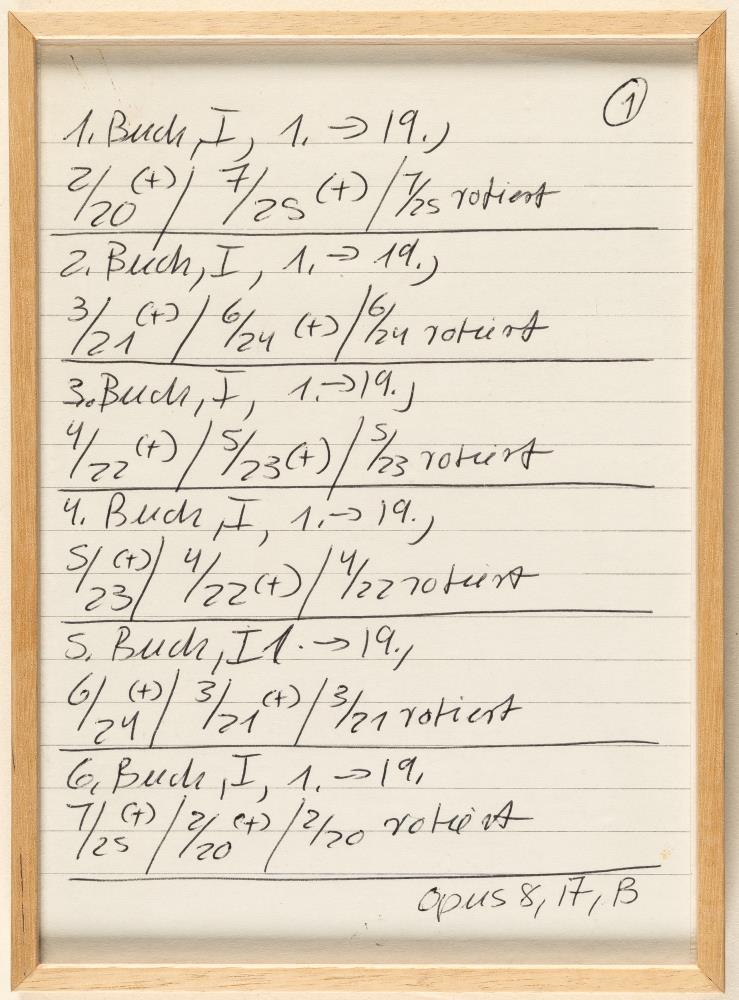 ①
1. Buch, I, 1. → 19.,
2/20 (+) / 7/25 (+) / 7/25 rotiert
2. Buch, I, 1. → 19.,
3/21 (+) / 6/24 (+) / 6/24 rotiert
3. Buch, I, 1. → 19.,
4/22 (+) / 5/23 (+) / 5/23 rotiert
4. Buch, I, 1. → 19.,
5/23 (+) / 4/22 (+) / 4/22 rotiert
5. Buch, I 1. → 19.,
6/24 (+) / 3/21 (+) / 3/21 rotiert
6. Buch, I, 1. → 19.
7/25 (+) / 2/20 (+) / 2/20 rotiert
Opus 8, 17, B